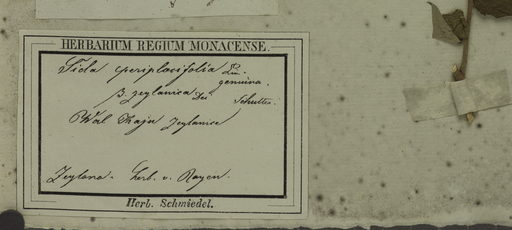 HERBARIUM REGIUM MONACENSE.
Sida periplocifolia Lin.
genuina.
β. zeylanica Dec. Schultes.
Zeylona. herb. v. Royen.
Herb. Schmiedel.